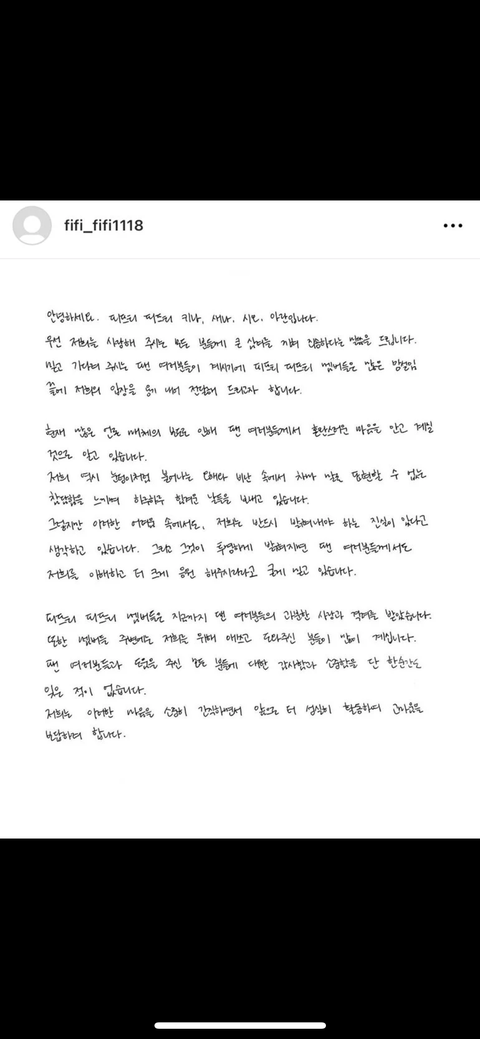 fifi_fifi1118
안녕하세요. 피프티 피프티 키나, 새나, 시오, 아란입니다.
우선 저희를 사랑해 주시는 모든 분들께 큰 심려를 끼쳐 죄송하다는 말씀을 드립니다.
믿고 기다려 주시는 팬 여러분들이 계시기에 피프티 피프티 멤버들은 많은 망설임
끝에 저희의 입장을 용기 내어 전달해 드리고자 합니다.
현재 많은 언론 매체의 보도로 인해 팬 여러분들께서 혼란스러운 마음을 안고 계실
것으로 알고 있습니다.
저희 역시 눈덩이처럼 불어나는 오해와 비난 속에서 차마 말로 표현할 수 없는
참담함을 느끼며 하루하루 힘겨운 날들을 보내고 있습니다.
그렇지만 이러한 어려움 속에서도, 저희는 반드시 밝혀내야 하는 진실이 있다고
생각하고 있습니다. 그리고 그것이 투명하게 밝혀지면 팬 여러분들께서도
저희를 이해하고 더 크게 응원 해주시리라고 굳게 믿고 있습니다.
피프티 피프티 멤버들은 지금까지 팬 여러분들의 과분한 사랑과 격려를 받았습니다.
또한 멤버들 주변에는 저희를 위해 애쓰고 도와주신 분들이 많이 계십니다.
팬 여러분들과 도움을 주신 모든 분들에 대한 감사함과 소중함을 단 한순간도
잊은 적이 없습니다.
저희는 이러한 마음을 소중히 간직하면서 앞으로 더 성실히 활동하여 고마움을
보답하려 합니다.